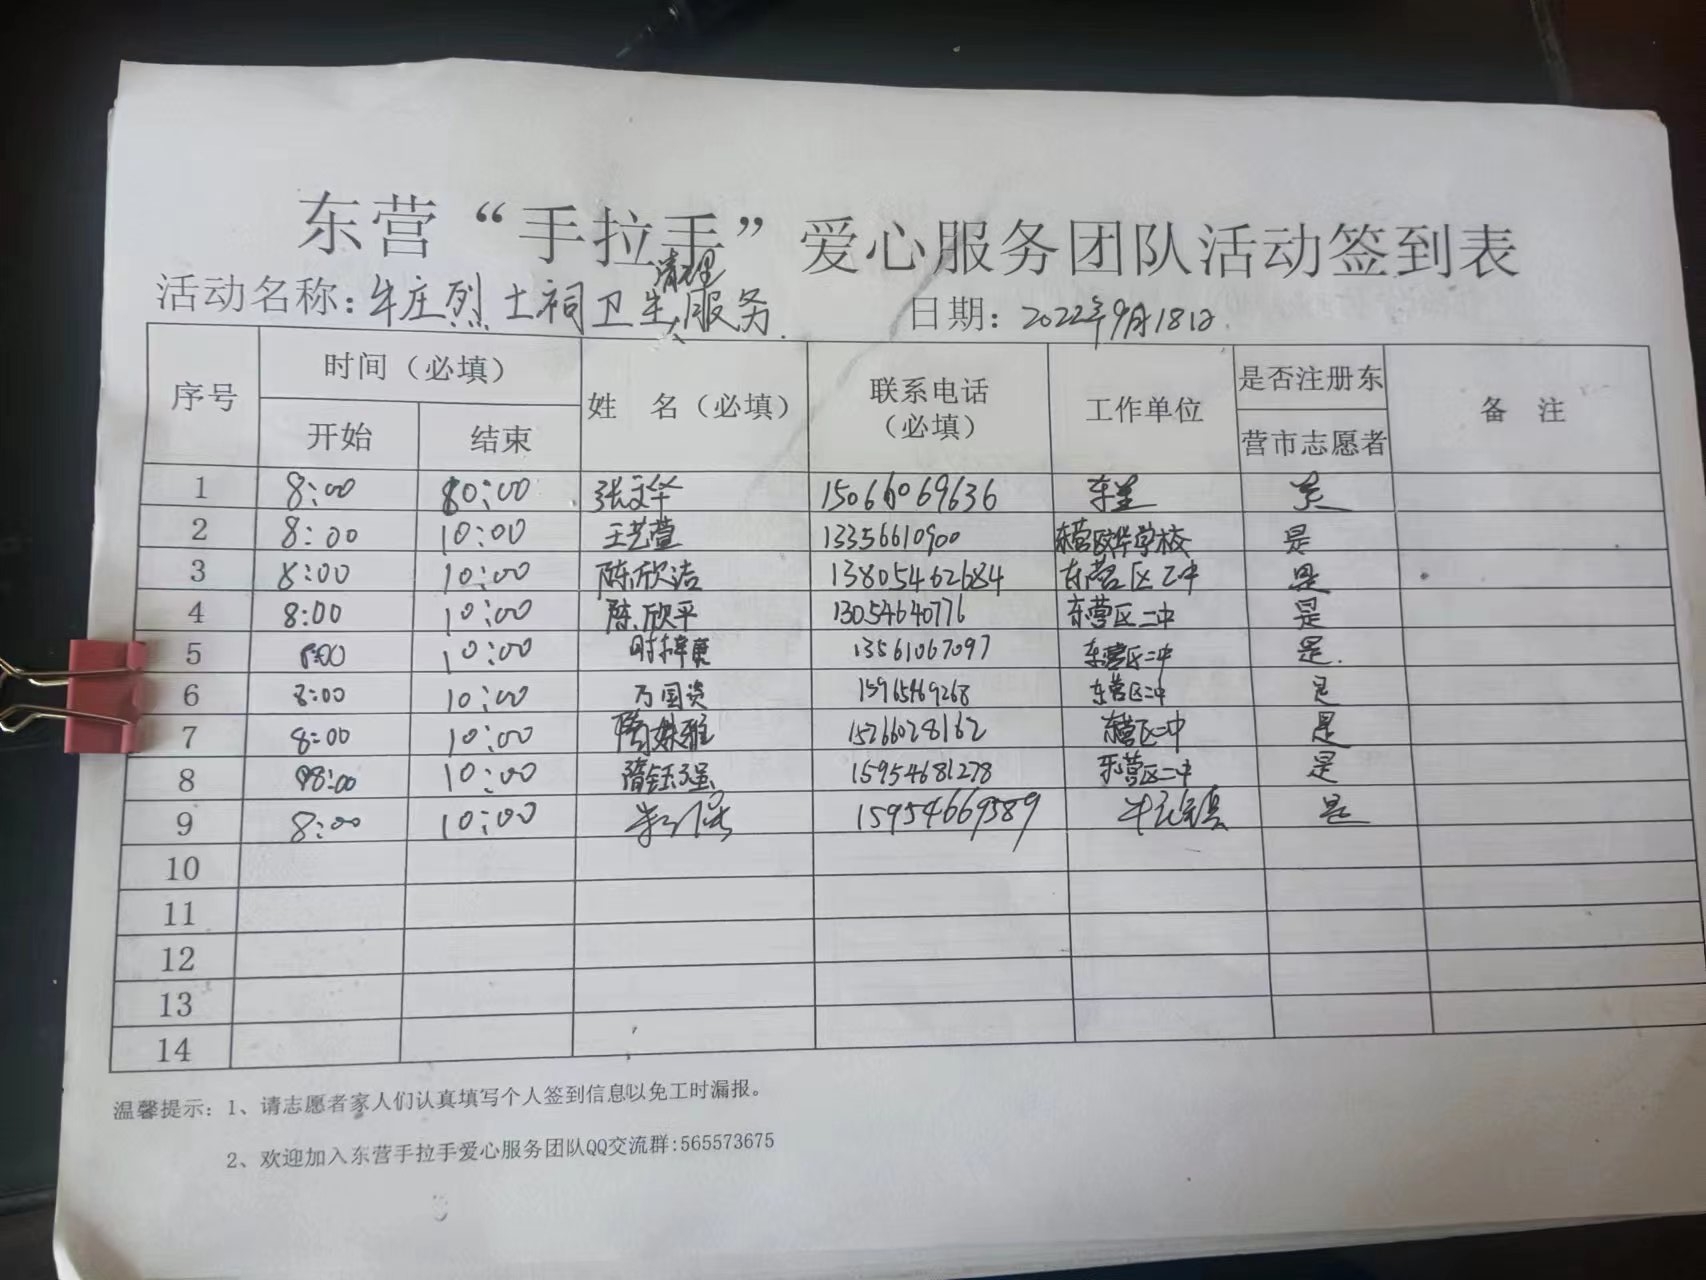 东营“手拉手”爱心服务团队活动签到表
活动名称：牛庄烈士祠卫生清理服务. 日期：2022年9月18日.
序号 时间（必填） 姓 名（必填） 联系电话（必填） 工作单位 是否注册东营市志愿者 备 注
开始 结束
1 8:00 10:00 张文华 15066069636 东营 是
2 8:00 10:00 王艺萱 13356610900 东营区欧华学校 是
3 8:00 10:00 陈欣洁 13805462684 东营区二中 是
4 8:00 10:00 陈欣平 13054640776 东营区二中 是
5 8:00 10:00 13561067097 东营区二中 是.
6 8:00 10:00 万国资 15965469268 东营区二中 是
7 8:00 10:00 15266028162 东营区二中 是
8 08:00 10:00 隋钰强 15954681278 东营区二中 是
9 8:00 10:00 15954669589 牛庄镇 是
10
11
12
13
14
温馨提示：1、请志愿者家人们认真填写个人签到信息以免工时漏报。
2、欢迎加入东营手拉手爱心服务团队QQ交流群:565573675